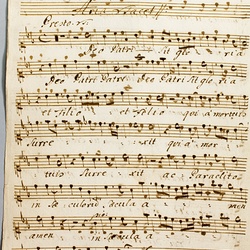 Aria tacet
Deo Patri sit glo ria
Deo Patri Patri Deo Patri sit glo ria
et Filio et Filio qui a mortuis
surre xit qui a mor
tuis surre xit ac Paraclito
in saeculorum saecula a men
amen in saecula